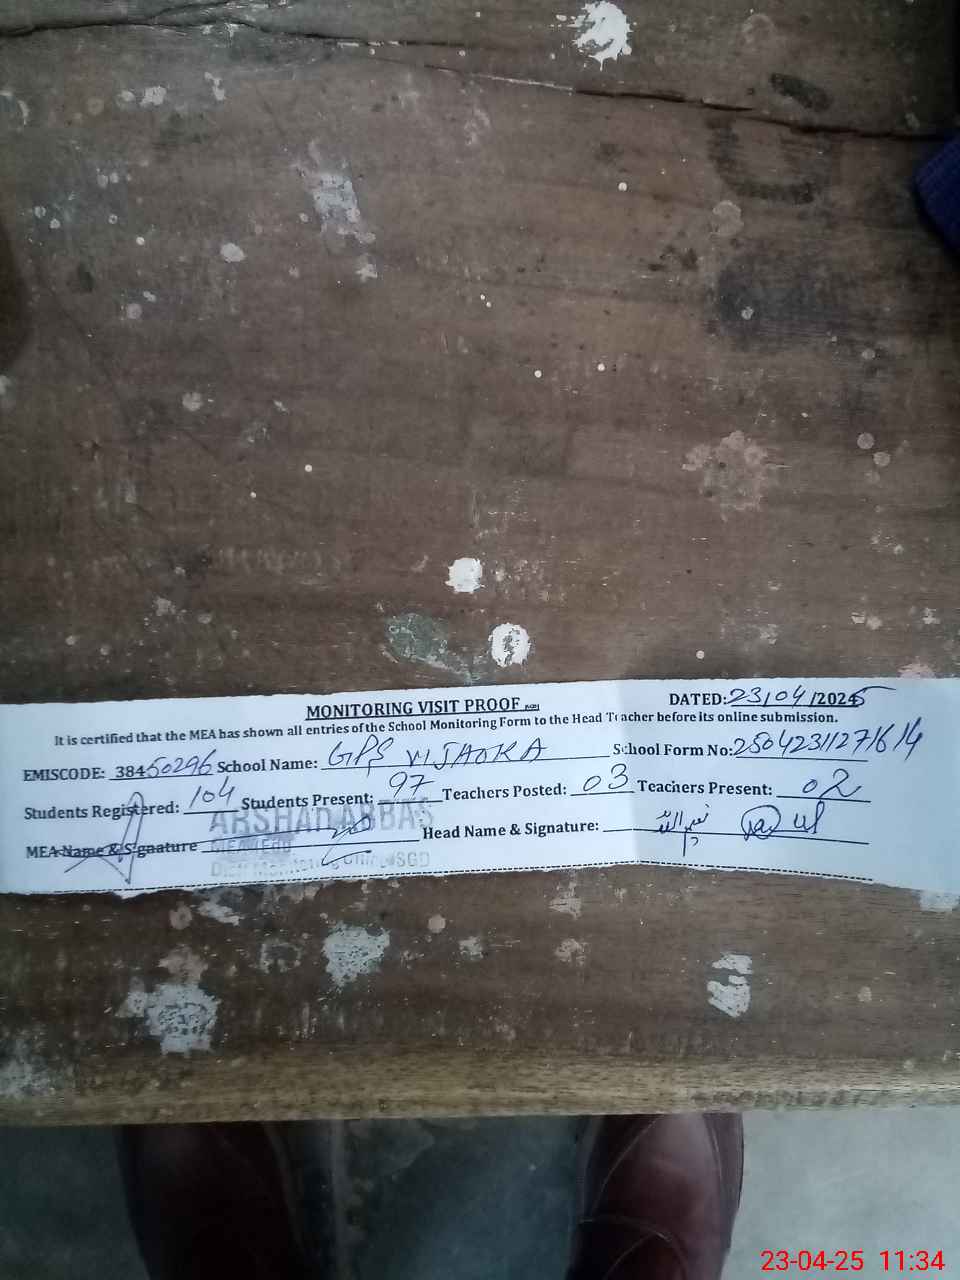 MONITORING VISIT PROOF
DATED: 23/04/2025
It is certified that the MEA has shown all entries of the School Monitoring Form to the Head Teacher before its online submission.
EMISCODE: 38450296 School Name: GPS VIJHOKA School Form No: 25042311271614
Students Registered: 104 Students Present: 97 Teachers Posted: 03 Teachers Present: 02
ARSHAD ABBAS
MEA Name & Signature Head Name & Signature:
SGD
23-04-25 11:34